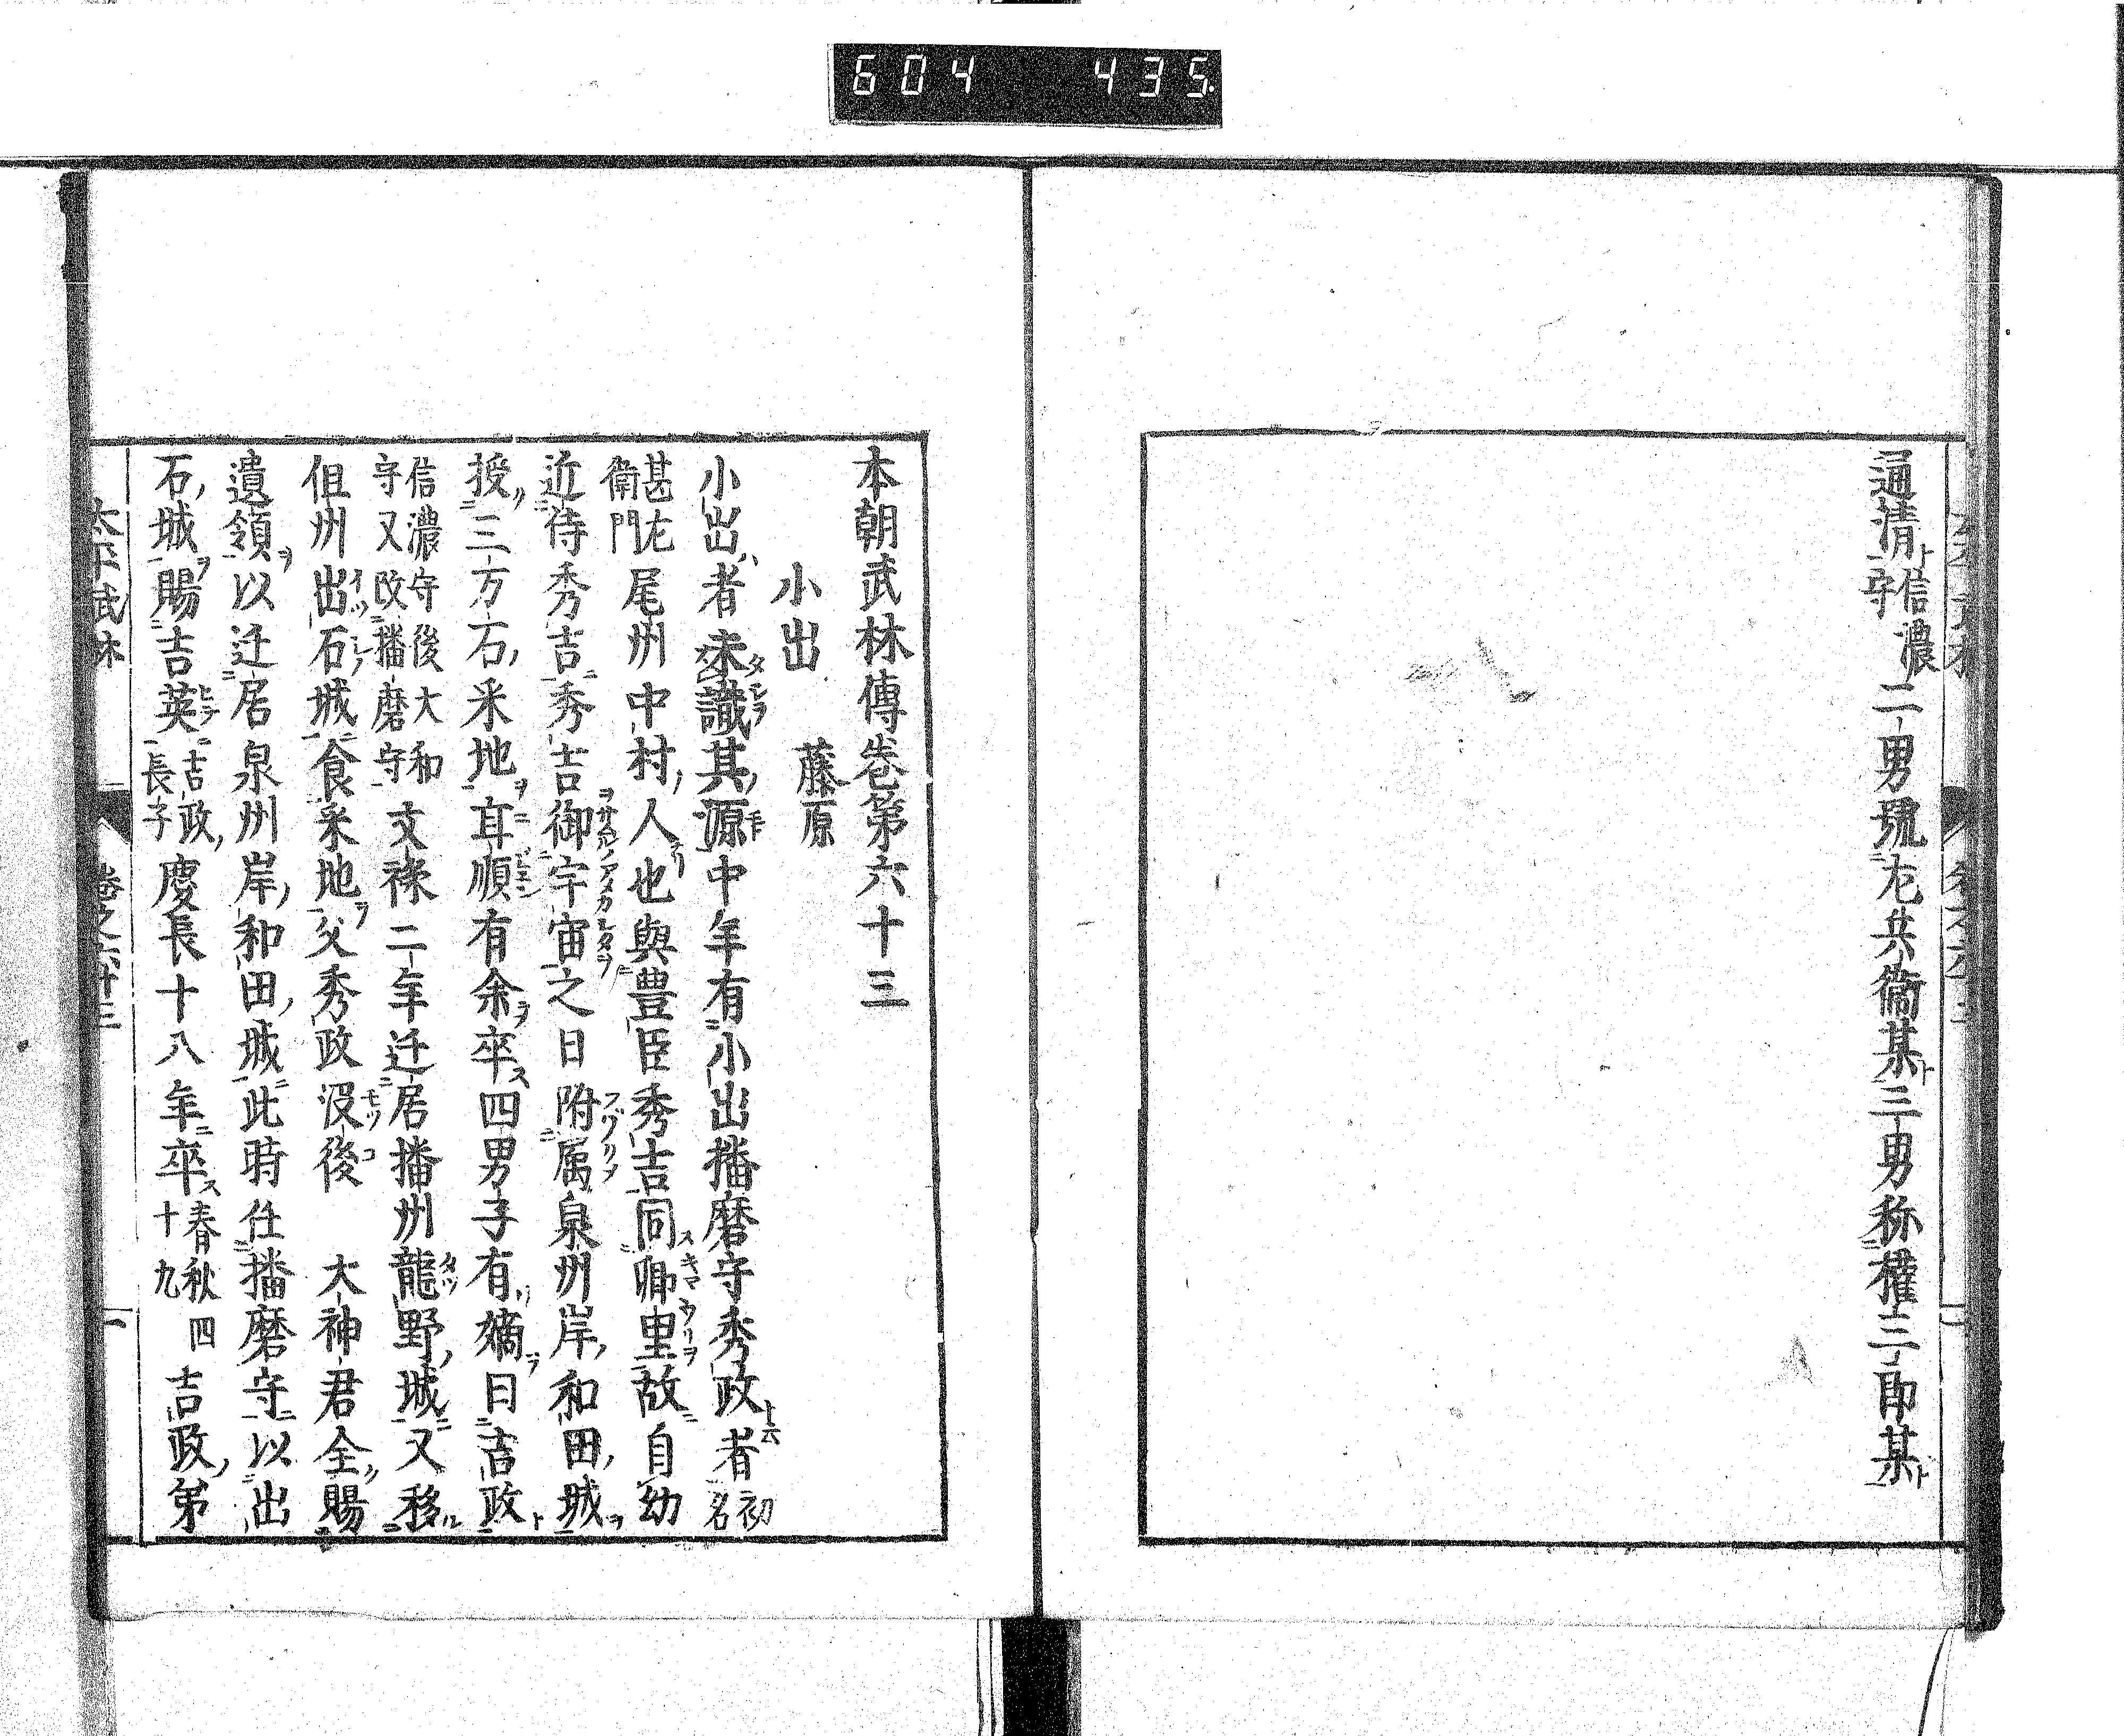 604 435
通清信濃守二男號左兵衛某三男称權三郎某
本朝武林傳卷第六十三
小出 藤原
小出者未識其源中年有小出播磨守秀政者初名
甚左衛門尾州中村人也與豊臣秀吉同鄉里故自幼
近侍秀吉秀吉御宇宙之日附属泉州岸和田城
授三万石采地耳順有余卒四男子有嫡曰吉政
信濃守後大和守又改播磨守文祿二年迁居播州龍野城又移
但州出石城食采地父秀政没後 大神君全賜
遺領以迁居泉州岸和田城此時任播磨守以出
石城賜吉英吉政長子慶長十八年卒春秋四十九吉政弟
卷之六十三 一